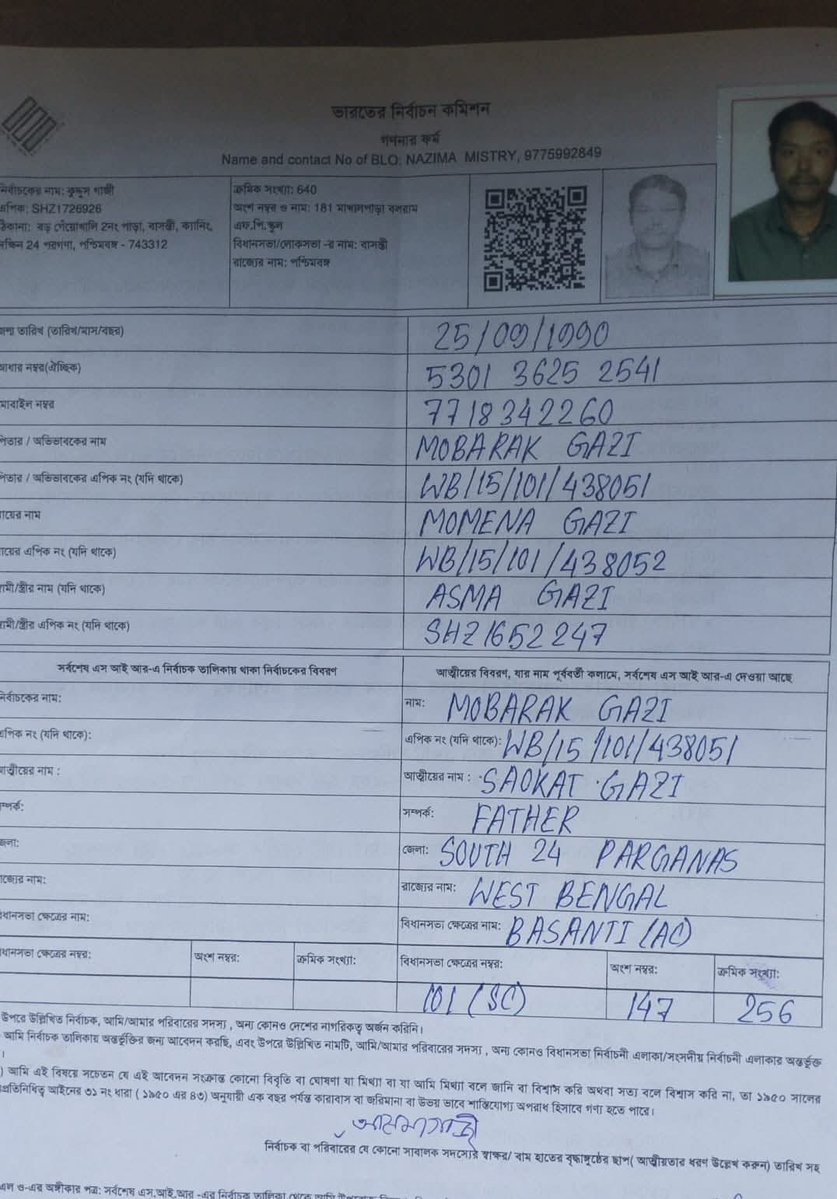 ভারতের নির্বাচন কমিশন
গণনার ফর্ম
Name and contact No of BLO: NAZIMA MISTRY, 9775992849
নির্বাচকের নাম: কুদ্দুস গাজী
এপিক: SHZ1726926
ঠিকানা: বড় গেঁয়োখালি 2নং পাড়া, বাসন্তী, ক্যানিং,
দক্ষিন 24 পরগণা, পশ্চিমবঙ্গ - 743312
ক্রমিক সংখ্যা: 640
অংশ নম্বর ও নাম: 181 মাখালপাড়া বলরাম
এফ.পি.স্কুল
বিধানসভা/লোকসভা -র নাম: বাসন্তী
রাজ্যের নাম: পশ্চিমবঙ্গ
জন্ম তারিখ (তারিখ/মাস/বছর) 25/09/1990
আধার নম্বর(ঐচ্ছিক) 5301 3625 2541
মোবাইল নম্বর 7718342260
পিতার / অভিভাবকের নাম MOBARAK GAZI
পিতার / অভিভাবকের এপিক নং (যদি থাকে) WB/15/101/438051
মায়ের নাম MOMENA GAZI
মায়ের এপিক নং (যদি থাকে) WB/15/101/438052
স্বামী/স্ত্রীর নাম (যদি থাকে) ASMA GAZI
স্বামী/স্ত্রীর এপিক নং (যদি থাকে) SHZ1652247
সর্বশেষ এস আই আর-এ নির্বাচক তালিকায় থাকা নির্বাচকের বিবরণ
আত্মীয়ের বিবরণ, যার নাম পূর্ববর্তী কলামে, সর্বশেষ এস আই আর-এ দেওয়া আছে
নির্বাচকের নাম: নাম: MOBARAK GAZI
এপিক নং (যদি থাকে): এপিক নং (যদি থাকে): WB/15/101/438051
আত্মীয়ের নাম : আত্মীয়ের নাম : SAOKAT GAZI
সম্পর্ক: সম্পর্ক: FATHER
জেলা: জেলা: SOUTH 24 PARGANAS
রাজ্যের নাম: রাজ্যের নাম: WEST BENGAL
বিধানসভা ক্ষেত্রের নাম: বিধানসভা ক্ষেত্রের নাম: BASANTI (AC)
বিধানসভা ক্ষেত্রের নম্বর: অংশ নম্বর: ক্রমিক সংখ্যা: বিধানসভা ক্ষেত্রের নম্বর: অংশ নম্বর: ক্রমিক সংখ্যা:
101 (SC) 147 256
উপরে উল্লিখিত নির্বাচক, আমি/আমার পরিবারের সদস্য , অন্য কোনও দেশের নাগরিকত্ব অর্জন করিনি।
আমি নির্বাচক তালিকায় অন্তর্ভুক্তির জন্য আবেদন করছি, এবং উপরে উল্লিখিত নামটি, আমি/আমার পরিবারের সদস্য , অন্য কোনও বিধানসভা নির্বাচনী এলাকা/সংসদীয় নির্বাচনী এলাকার অন্তর্ভুক্ত
) আমি এই বিষয়ে সচেতন যে এই আবেদন সংক্রান্ত কোনো বিবৃতি বা ঘোষণা যা মিথ্যা বা যা আমি মিথ্যা বলে জানি বা বিশ্বাস করি অথবা সত্য বলে বিশ্বাস করি না, তা ১৯৫০ সালের
প্রতিনিধিত্ব আইনের ৩১ নং ধারা ( ১৯৫০ এর ৪৩) অনুযায়ী এক বছর পর্যন্ত কারাবাস বা জরিমানা বা উভয় ভাবে শাস্তিযোগ্য অপরাধ হিসাবে গণ্য হতে পারে।
নির্বাচক বা পরিবারের যে কোনো সাবালক সদস্যের স্বাক্ষর/ বাম হাতের বৃদ্ধাঙ্গুষ্ঠের ছাপ( আত্মীয়তার ধরণ উল্লেখ করুন) তারিখ সহ
এল ও-এর অঙ্গীকার পত্র: সর্বশেষ এস.আই.আর -এর নির্বাচক তালিকা থেকে